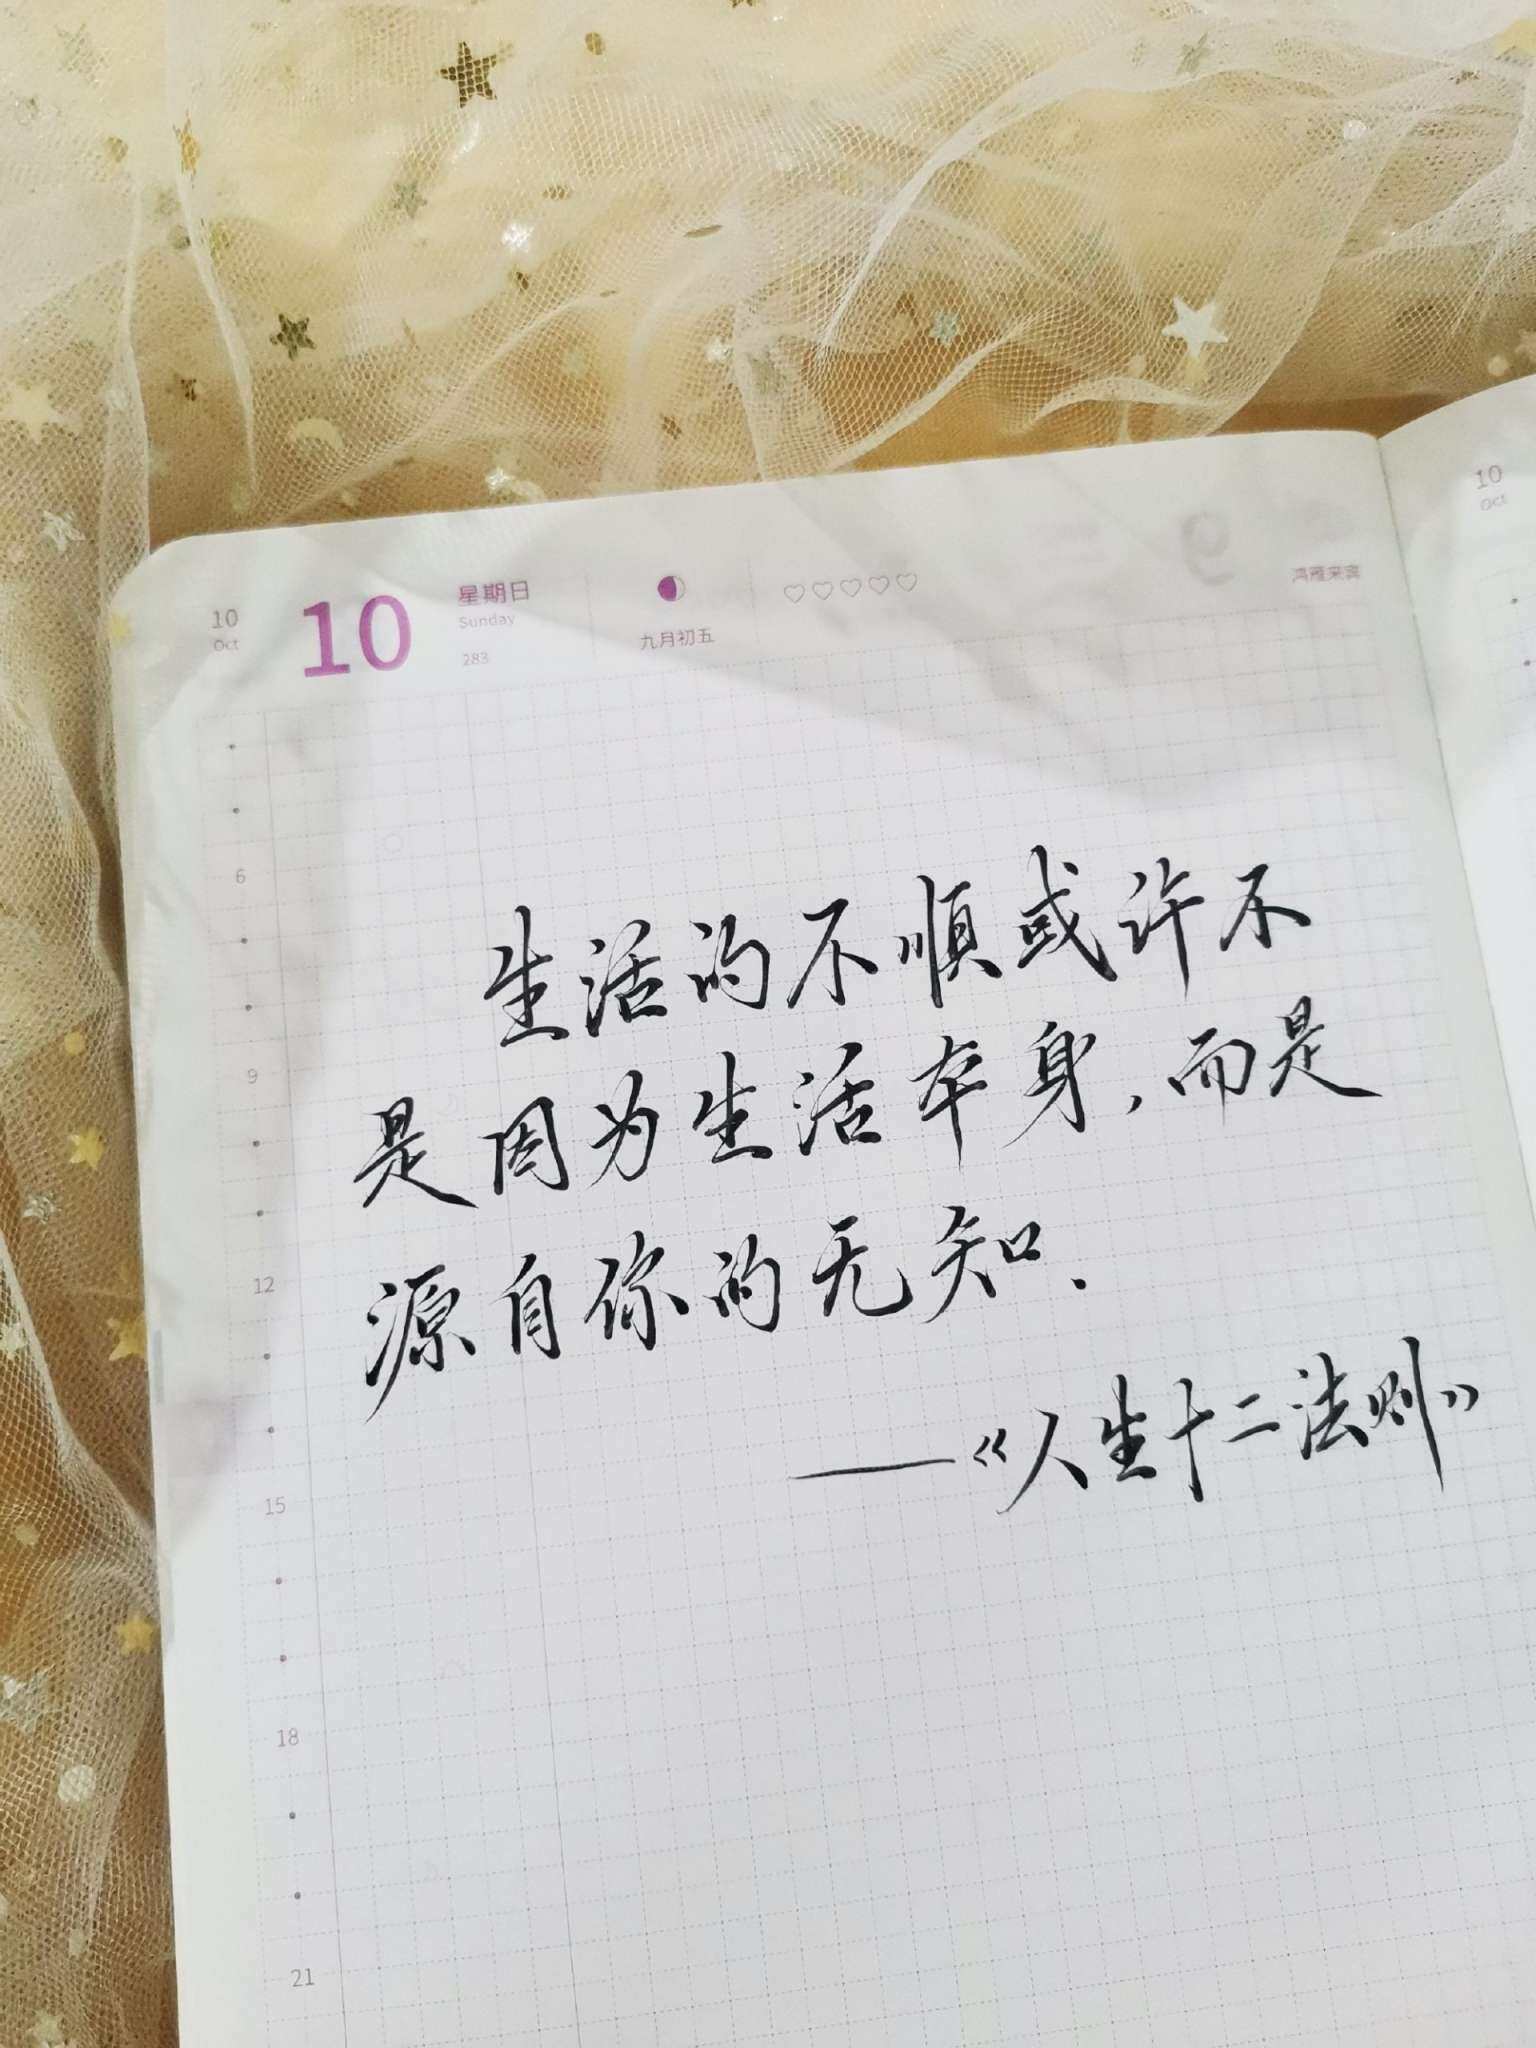 10
Oct
10
星期日
Sunday
283
九月初五
鸿雁来宾
10
Oct
6
9
12
15
18
21
生活的不顺或许不
是因为生活本身，而是
源自你的无知.
——《人生十二法则》